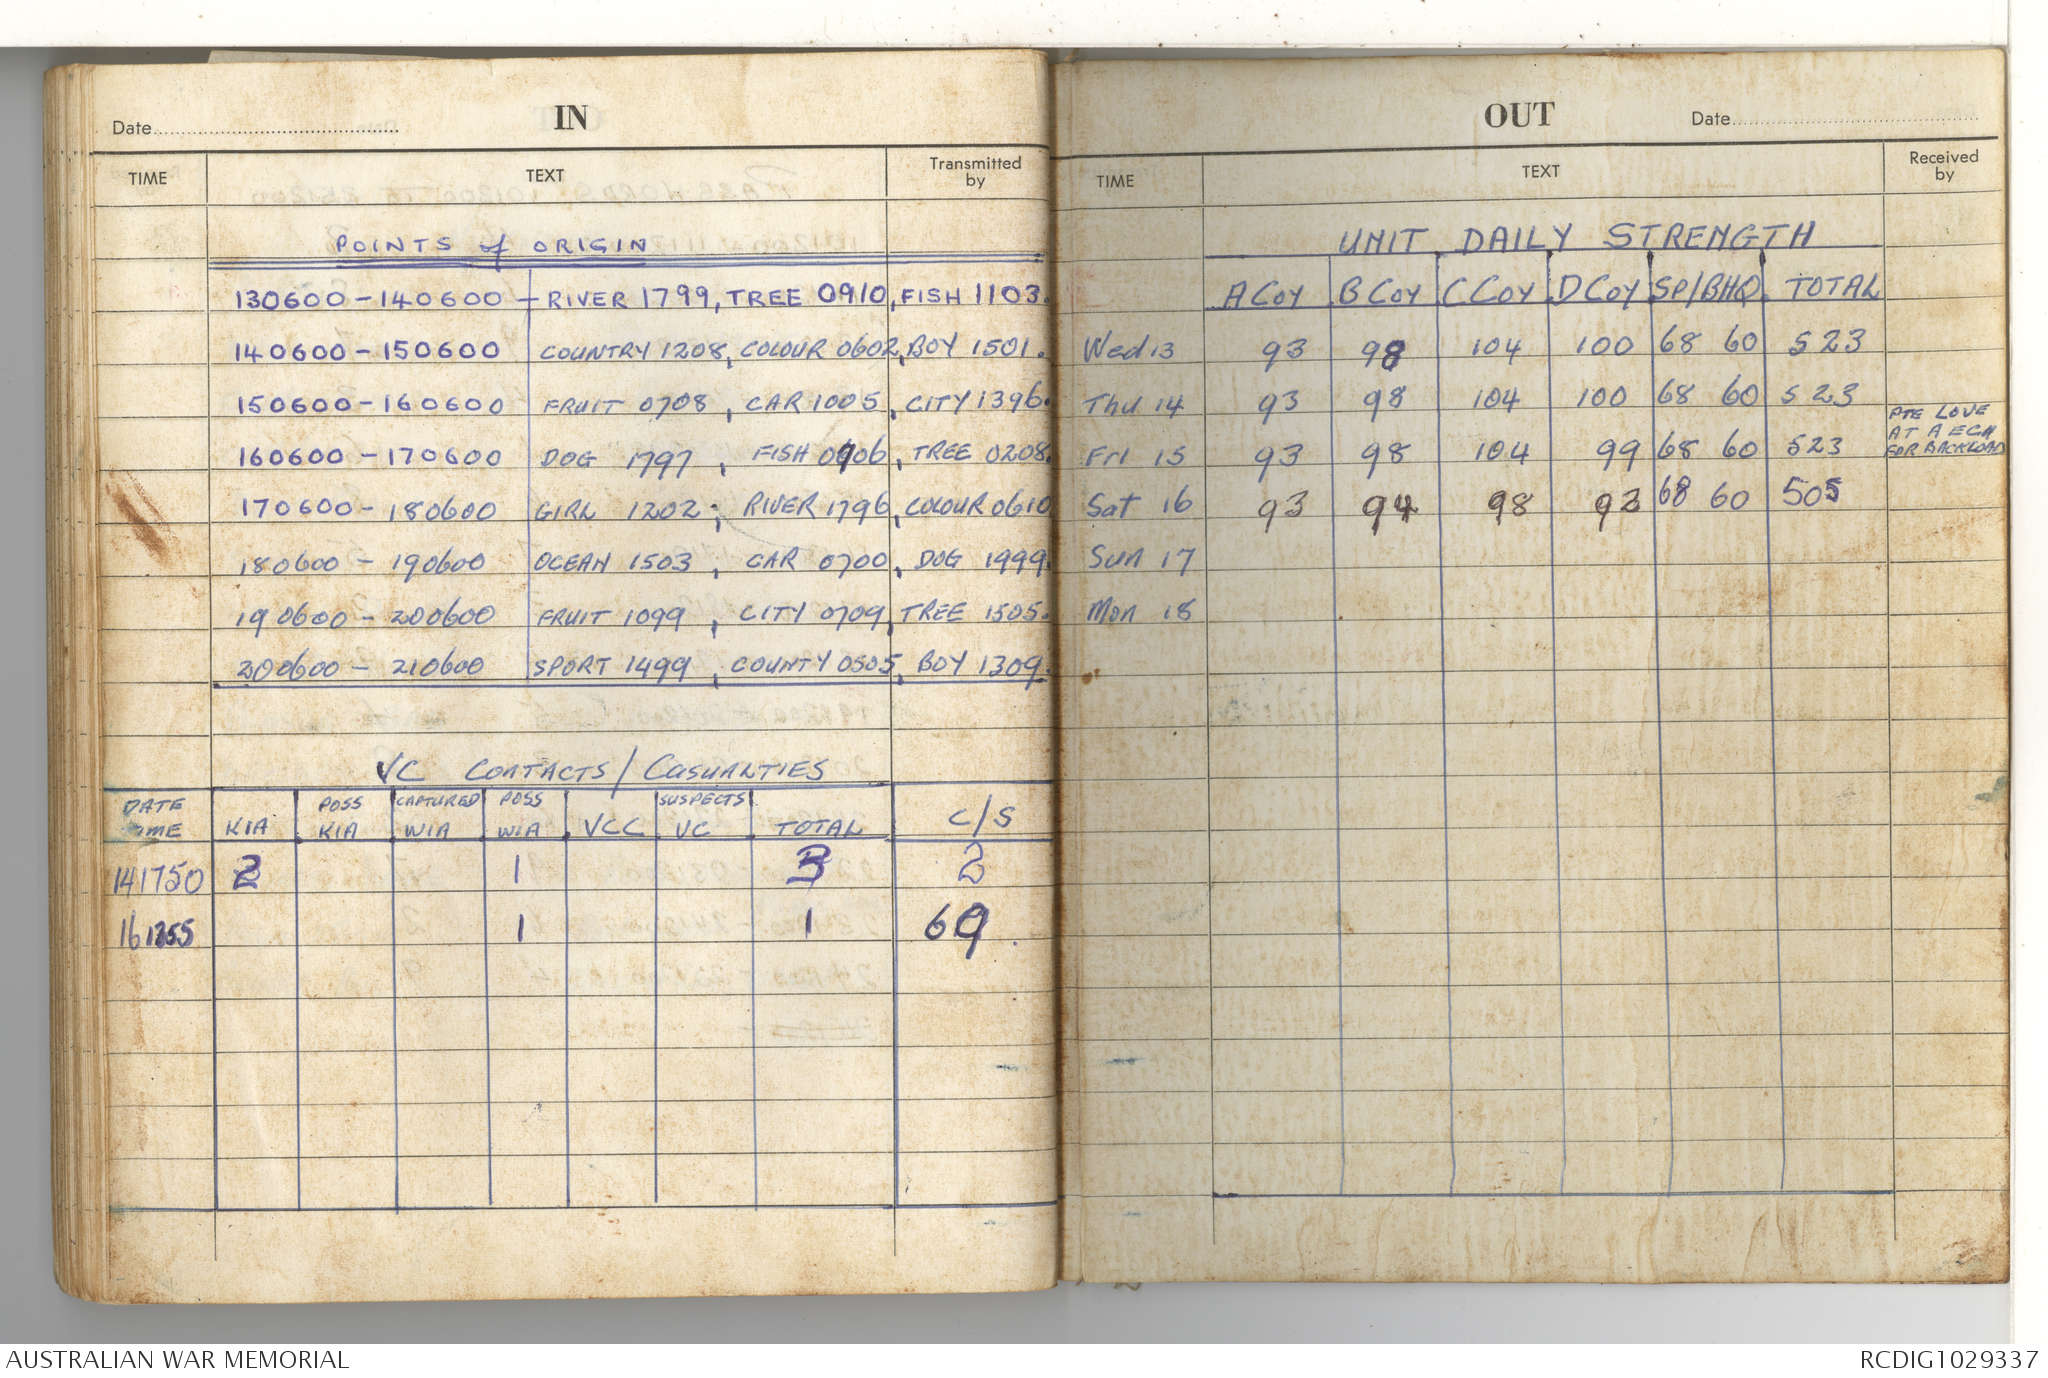 IN
Date
TIME TEXT Transmitted by
POINTS of ORIGIN
130600 - 140600 - RIVER 1799, TREE 0910, FISH 1103.
140600 - 150600 COUNTRY 1208, COLOUR 0602, BOY 1501.
150600 - 160600 FRUIT 0708, CAR 1005, CITY 1396.
160600 - 170600 DOG 1797, FISH 0906, TREE 0208.
170600 - 180600 GIRL 1202, RIVER 1796, COLOUR 0610
180600 - 190600 OCEAN 1503, CAR 0700, DOG 1999.
190600 - 200600 FRUIT 1099, CITY 0709, TREE 1505.
200600 - 210600 SPORT 1499, COUNTY 0505, BOY 1309.
VC CONTACTS / CASUALTIES
DATE TIME KIA POSS KIA CAPTURED WIA POSS WIA VCC SUSPECTS VC TOTAL C/S
141750 2 1 3 2
161355 1 1 69
OUT
Date
TIME TEXT Received by
UNIT DAILY STRENGTH
A COY B COY C COY D COY SP/BHQ TOTAL
Wed 13 93 98 104 100 68 60 523
Thu 14 93 98 104 100 68 60 523
Fri 15 93 98 104 99 68 60 523
PTE LOVE
AT A ECH
FOR BACKLOAD
Sat 16 93 94 98 92 68 60 505
Sun 17
Mon 18
AUSTRALIAN WAR MEMORIAL
RCDIG1029337